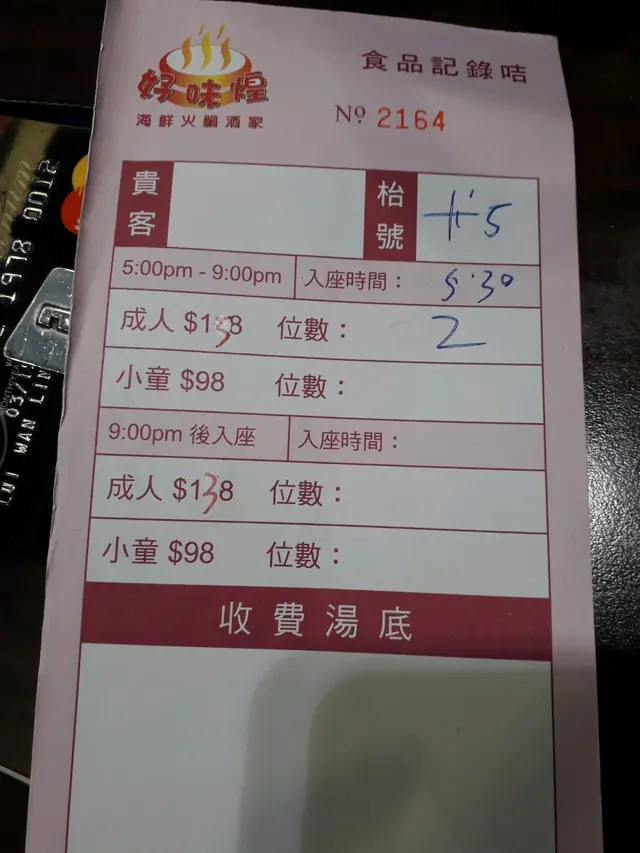 好味煌
海鮮火鍋酒家
食品記錄咭
Nº 2164
貴客
枱號 卡5
5:00pm - 9:00pm 入座時間： 5:30
成人 $158 位數： 2
小童 $98 位數：
9:00pm 後入座 入座時間：
成人 $138 位數：
小童 $98 位數：
收費湯底